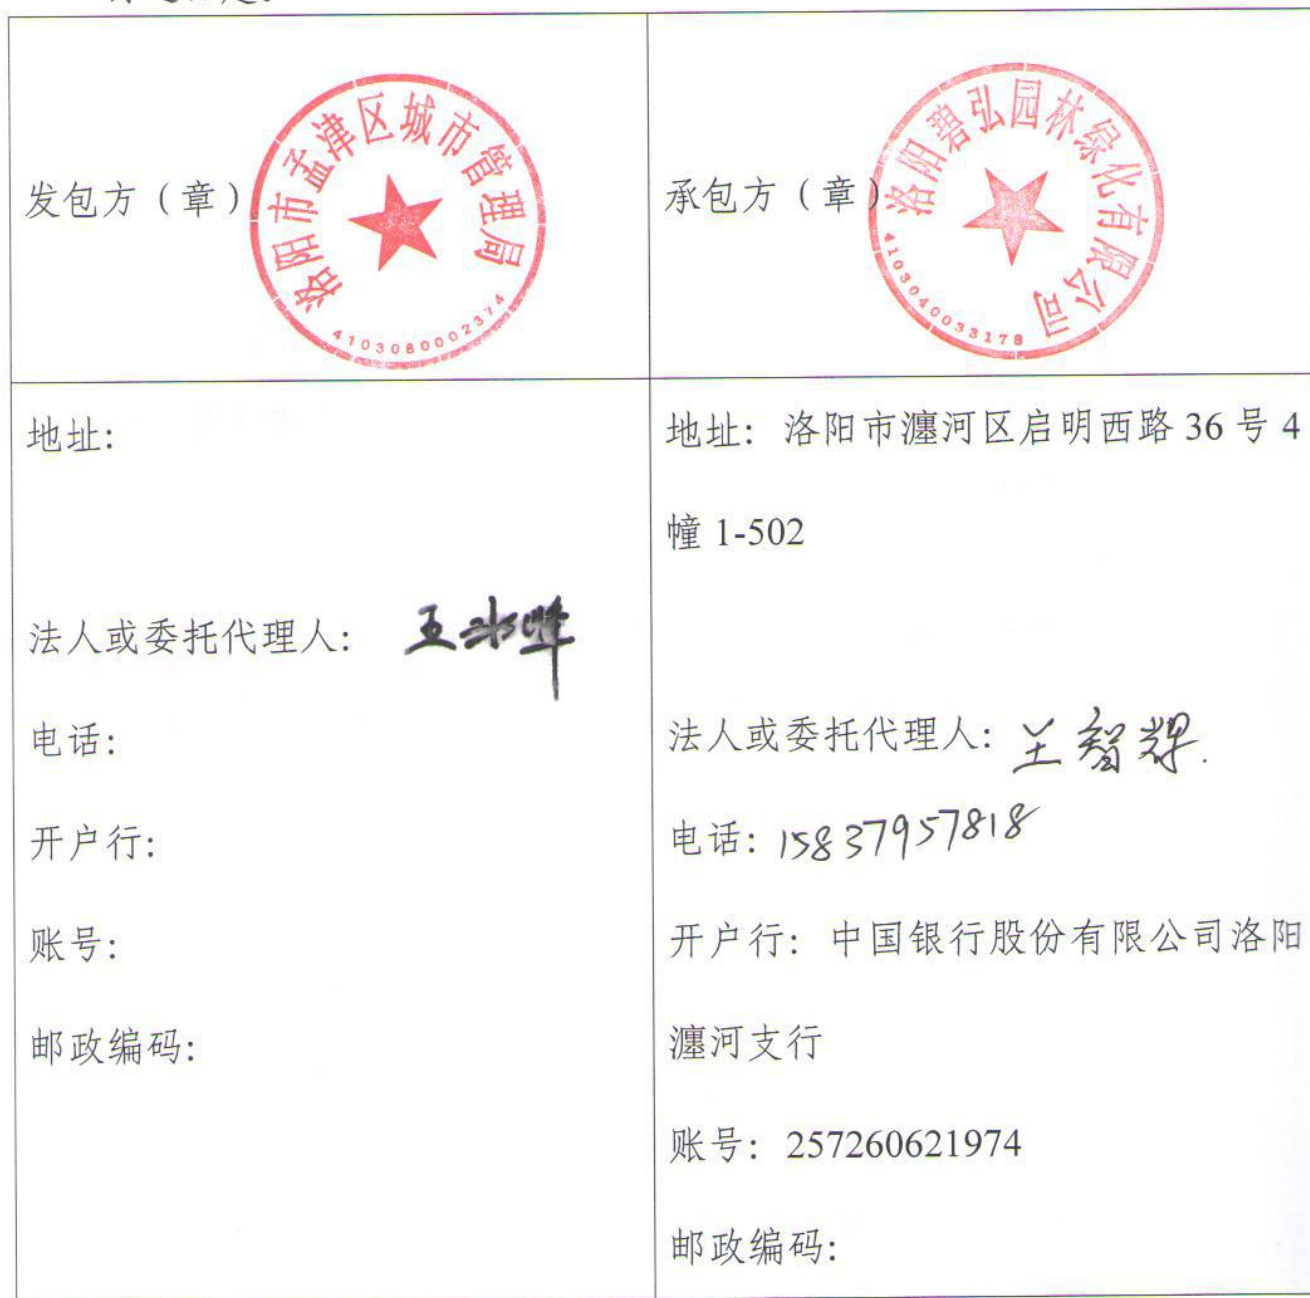 发包方（章）
洛阳市孟津区城市管理局
4103080002374
承包方（章）
洛阳碧弘园林绿化有限公司
4103040033178
地址：
法人或委托代理人：
电话：
开户行：
账号：
邮政编码：
地址：洛阳市瀍河区启明西路 36 号 4
幢 1-502
法人或委托代理人：王智辉.
电话：15837957818
开户行：中国银行股份有限公司洛阳
瀍河支行
账号：257260621974
邮政编码：